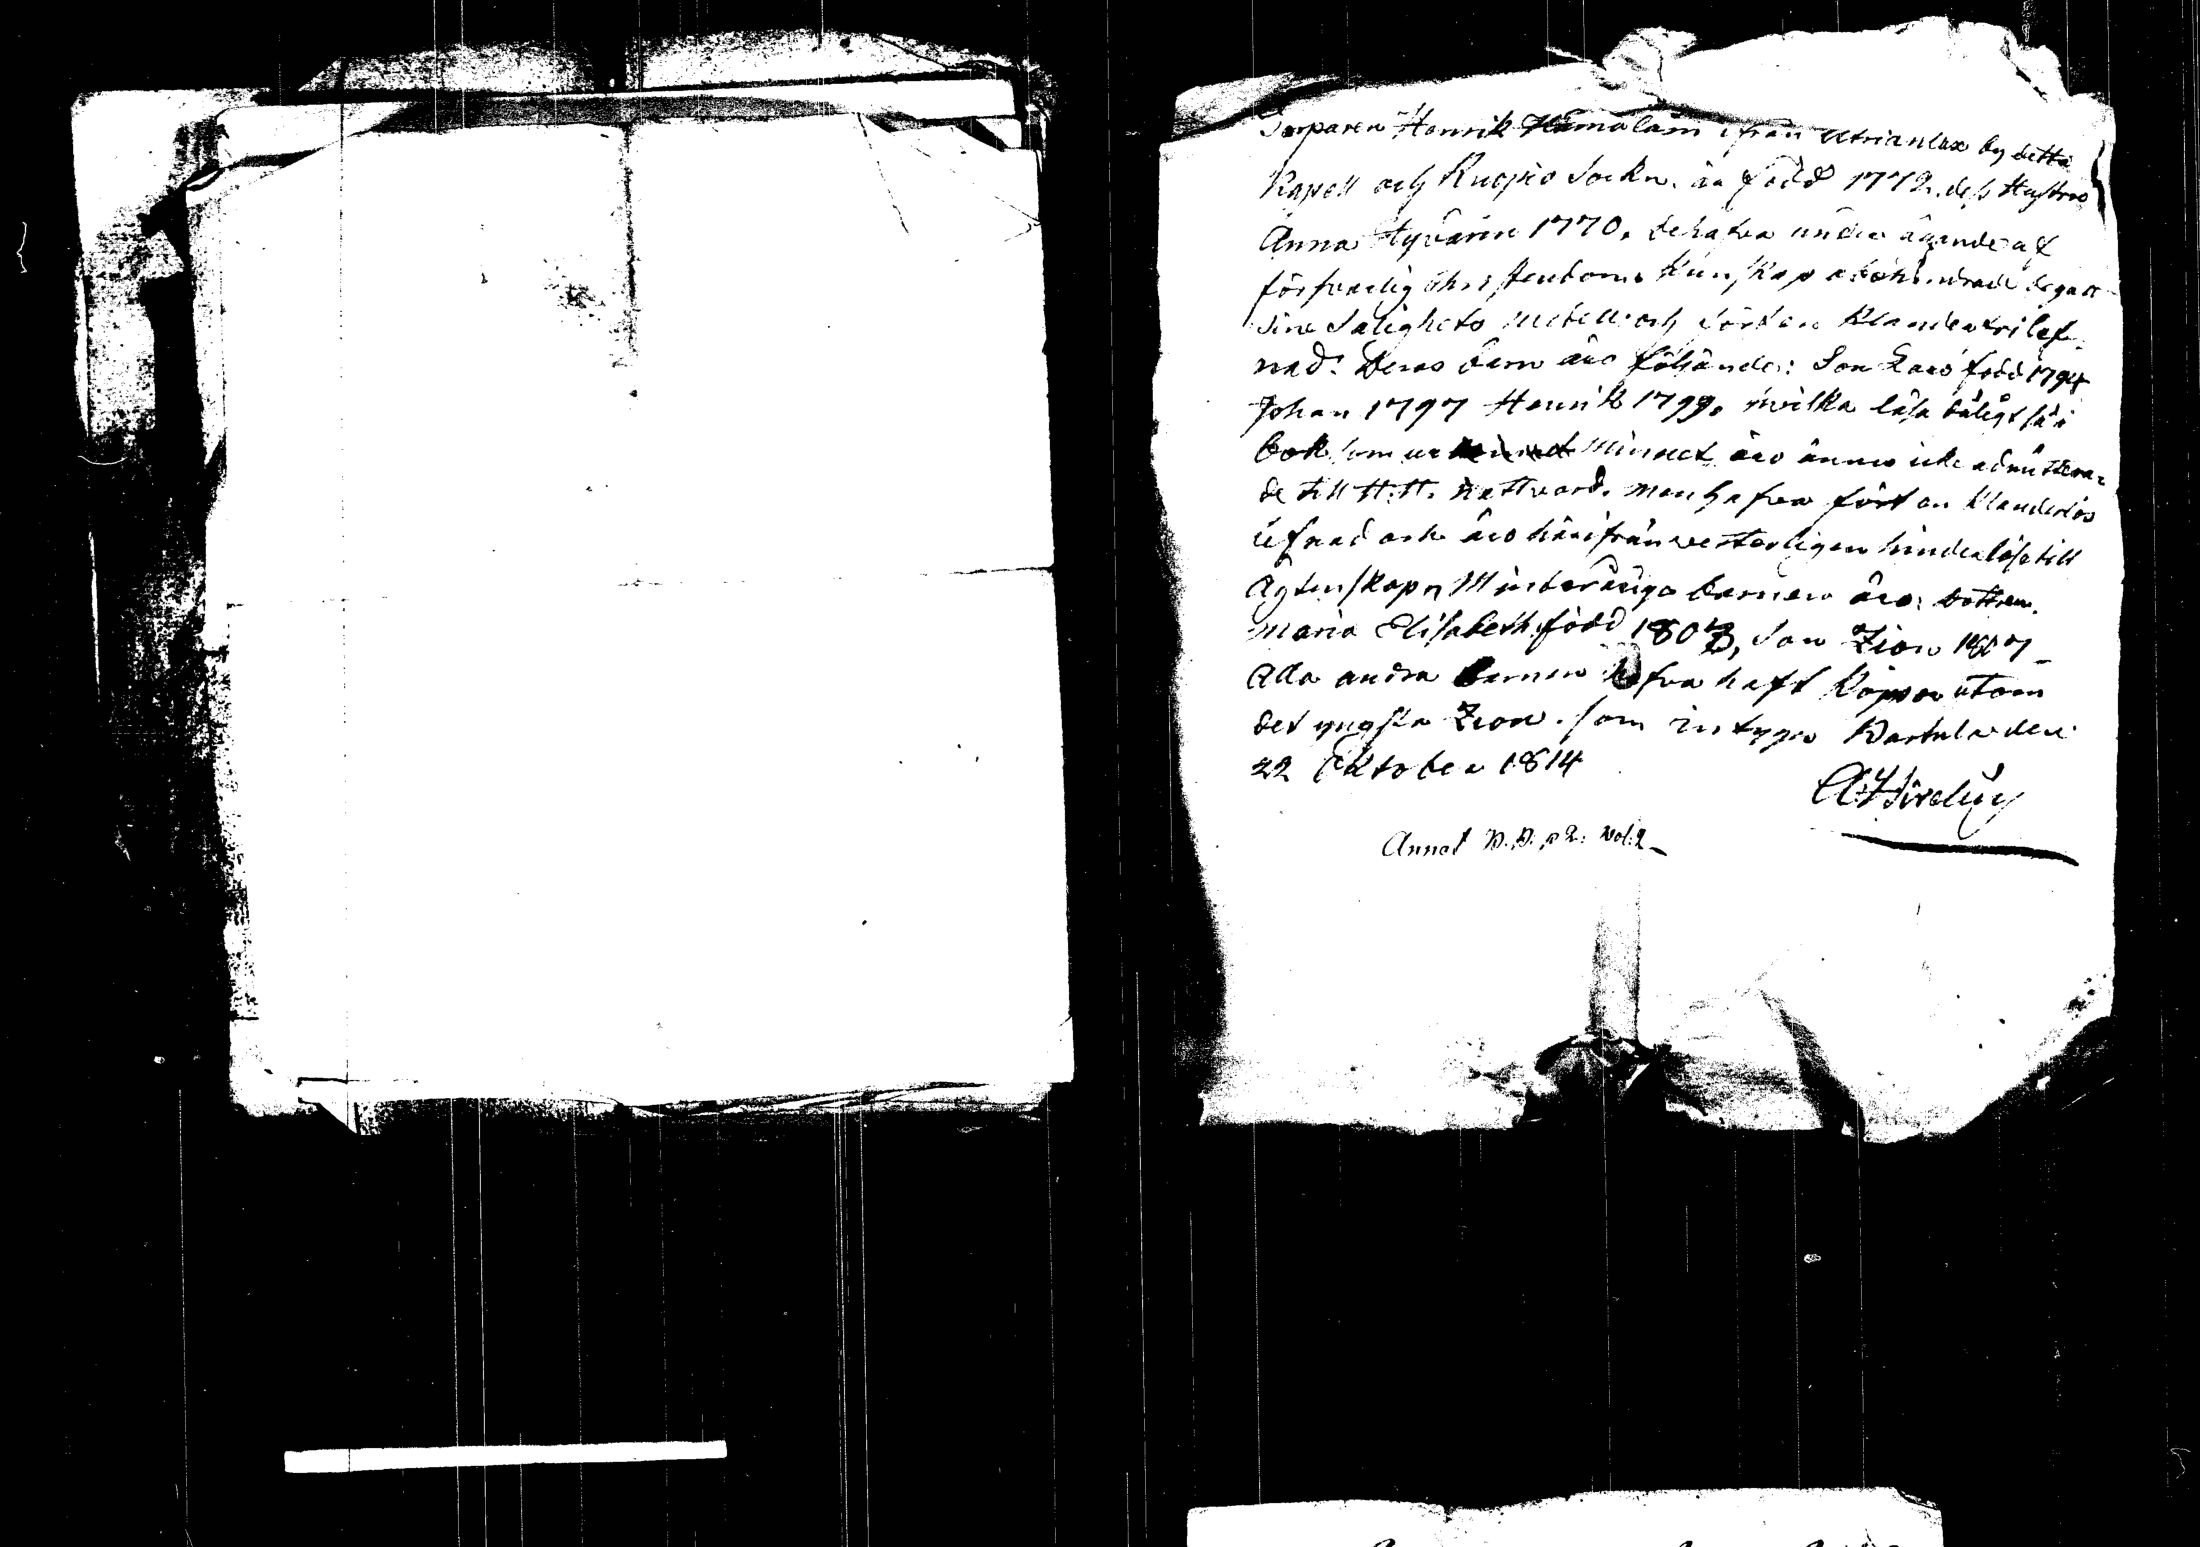 Torparen Henrik Hämaläin ifrån by detta
Kapell och Kuopio Sockn. är född 1772. dess Hustru
Anna Hyvärin 1770. de hafva under ägande af
försvarlig Christendoms Kunskap obehindrade begått
sine Salighets medell och fört en Klanderfri lef-
nad. Deras barn äro följande: Son Lars född 1794
Johan 1797 Henrik 1799. hvilka läsa så i
bok som ur minnet äro ännu icke admittera-
de till H. H. Nattvard. men hafva fört en klanderlös
lefnad och äro härifrån veterligen hinderlöse till
Ägtenskap. Minderåriga barnen äro: dottren
Maria Elisabeth född 1803, Son Zion 1807
Alla andra barnen hafva haft Koppor utom
det yngsta Zion. som intygar Karttula den
22 Oktober 1814
Annot p. 2. vol. 2